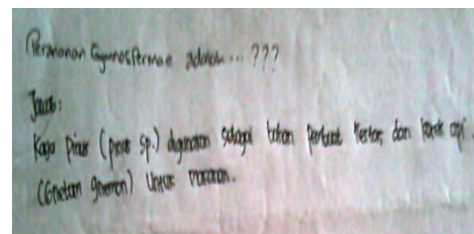 Peranan Gymnospermae adalah... ???
Jawab:
Kayu Pinus (pinus sp.) digunakan sebagai bahan pembuat kertas dan korek api.
(Gnetum gnemon) Untuk makanan.